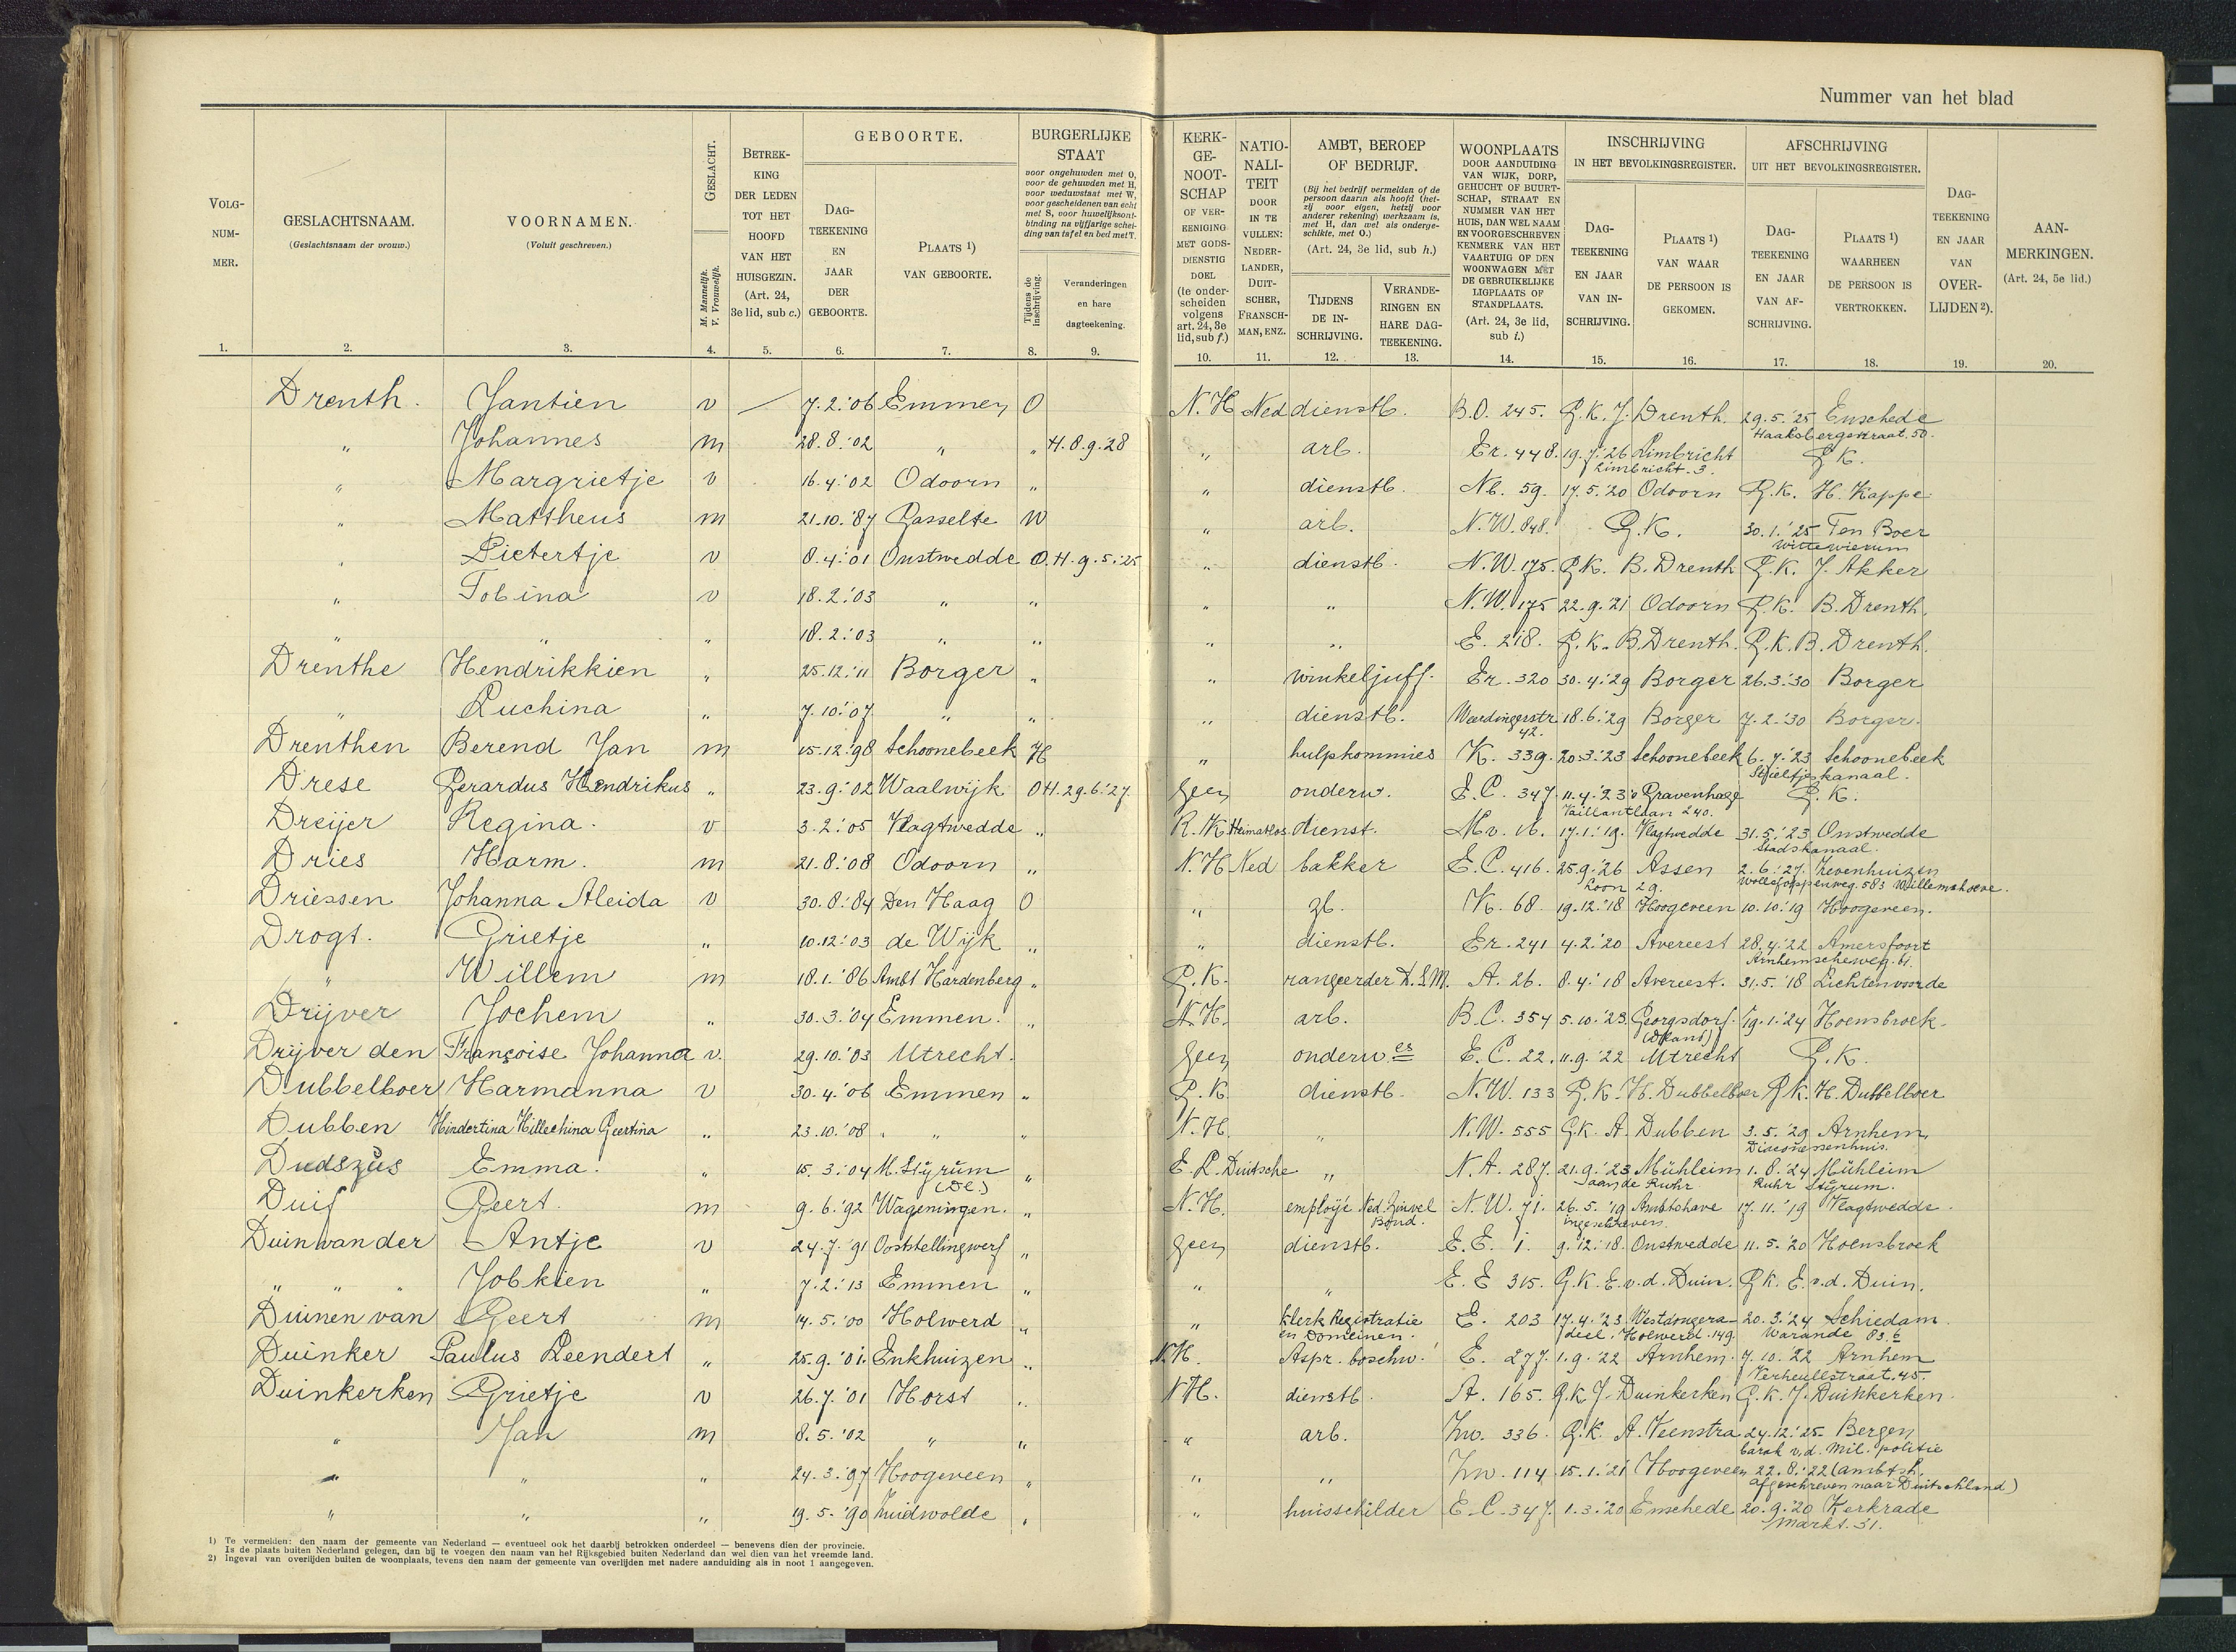 Nummer van het blad
VOLG-NUM-MER. 1.
GESLACHTSNAAM. (Geslachtsnaam der vrouw.) 2.
VOORNAMEN. (Voluit geschreven.) 3.
GESLACHT. M. Mannelijk. V. Vrouwelijk. 4.
BETREKKING DER LEDEN TOT HET HOOFD VAN HET HUISGEZIN. (Art. 24, 3e lid, sub c.) 5.
GEBOORTE.
DAG-TEEKENING EN JAAR DER GEBOORTE. 6.
PLAATS 1) VAN GEBOORTE. 7.
BURGERLIJKE STAAT
voor ongehuwden met O, voor de gehuwden met H, voor weduwstaat met W, voor gescheidenen van echt met S, voor huwelijksontbinding na vijfjarige scheiding van tafel en bed met T.
Tijdens de inschrijving. 8.
Veranderingen en hare dagteekening. 9.
KERK-GE-NOOT-SCHAP OF VER-EENIGING MET GODS-DIENSTIG DOEL (te onder-scheiden volgens art. 24, 3e lid, sub f.) 10.
NATIO-NALI-TEIT DOOR IN TE VULLEN: NEDER-LANDER, DUIT-SCHER, FRANSCH-MAN, ENZ. 11.
AMBT, BEROEP OF BEDRIJF.
(Bij het bedrijf vermelden of de persoon daarin als hoofd (hetzij voor eigen, hetzij voor anderer rekening) werkzaam is, met H, dan wel als ondergeschikte, met O.)
(Art. 24, 3e lid, sub h.)
TIJDENS DE IN-SCHRIJVING. 12.
VERANDE-RINGEN EN HARE DAG-TEEKENING. 13.
WOONPLAATS DOOR AANDUIDING VAN WIJK, DORP, GEHUCHT OF BUURT-SCHAP, STRAAT EN NUMMER VAN HET HUIS, DAN WEL NAAM EN VOORGESCHREVEN KENMERK VAN HET VAARTUIG OF DEN WOONWAGEN MET DE GEBRUIKELIJKE LIGPLAATS OF STANDPLAATS. (Art. 24, 3e lid, sub i.) 14.
INSCHRIJVING IN HET BEVOLKINGSREGISTER.
DAG-TEEKENING EN JAAR VAN IN-SCHRIJVING. 15.
PLAATS 1) VAN WAAR DE PERSOON IS GEKOMEN. 16.
AFSCHRIJVING UIT HET BEVOLKINGSREGISTER.
DAG-TEEKENING EN JAAR VAN AF-SCHRIJVING. 17.
PLAATS 1) WAARHEEN DE PERSOON IS VERTROKKEN. 18.
DAG-TEEKENING EN JAAR VAN OVER-LIJDEN 2). 19.
AAN-MERKINGEN. (Art. 24, 5e lid.) 20.
Drenth. Jantien v 7.2.'06 Emmen O N.H. Ned dienstb. B.O. 245. G.K. J. Drenth. 29.5.'25 Enschede
Haaksbergerstraat. 50.
" Johannes m 28.8.'02 " " H. 8.9.'28 " arb. Er. 448. 19.7.'26 Limbricht G.K.
Limbricht. 3.
" Margrietje v 16.4.'02 Odoorn " " dienstb. Nb. 59. 17.5.'20 Odoorn G.K. H. Kappe
" Mattheus m 21.10.'87 Gasselte W " arb. N.W. 848. G.K. 30.1.'25 Ten Boer
Wittewierum
" Pietertje v 8.4.'01 Onstwedde O. H. 9.5.'25 " dienstb. N.W. 175. G.K. B. Drenth G.K. J. Akker
" Tobina v 18.2.'03 " " " " N.W. 175 22.9.'21 Odoorn G.K. B. Drenth.
" " " 18.2.'03 " " " " E. 218. G.K. B. Drenth. G.K. B. Drenth.
Drenthe Hendrikkien " 25.12.'11 Borger " " winkeljuff. Er. 320 30.4.'29 Borger 26.3.'30 Borger
" Luchina " 7.10.'07 " " " dienstb. Weerdingerstr. 18.6.'29 Borger 7.2.'30 Borger.
42.
Drenthen Berend Jan m 15.12.'98 Schoonebeek H " hulpkommies K. 339. 20.3.'23 Schoonebeek 6.7.'23 Schoonebeek
Stieltjeskanaal.
Drese Gerardus Hendrikus " 23.9.'02 Waalwijk O H. 29.6.'27 Geen onderw. E.C. 347. 11.4.'23 's Gravenhage G.K.
Vaillantlaan 240.
Dreijer Regina. v 3.2.'05 Vlagtwedde " R.K. Heimatlos dienst. Mv. 16. 17.1.'19. Vlagtwedde 31.5.'23 Onstwedde
Stadskanaal.
Dries Harm. m 21.8.'08 Odoorn " N.H. Ned bakker E.C. 416. 25.9.'26 Assen 2.6.'27. Zevenhuizen
Loon 29. 583 Willemshoeve.
Driessen Johanna Aleida v 30.8.'84 Den Haag O " zb. K. 68. 19.12.'18 Hoogeveen 10.10.'19 Hoogeveen.
Drogt. Grietje " 10.12.'03 de Wijk " " dienstb. Er. 241 4.2.'20 Avereest 28.4.'22 Amersfoort
Arnhemscheweg. 61.
" Willem m 18.1.'86 Ambt Hardenberg " G.K. rangeerder D.S.M. A. 26. 8.4.'18 Avereest. 31.5.'18 Lichtenvoorde
Drijver Jochem " 30.3.'04 Emmen. " N.H. arb. B.C. 354 5.10.'23. Georgsdorf. 19.1.'24 Hoensbroek
Drijver den Françoise Johanna v. 29.10.'03 Utrecht. Geen onderw.es E.C. 22. 11.9.'22 Utrecht G.K.
Dubbelboer Harmanna v 30.4.'06 Emmen " G.K. dienstb. N.W. 133 G.K. H. Dubbelboer G.K. H. Dubbelboer
Dubben Hindertina Hillechina Geertina " 23.10.'08 " " " N.H. " N.W. 555 G.K. A. Dubben 3.5.'29 Arnhem,
Diaconessenhuis.
Dudszus Emma. " 15.3.'04 M. Styrum " E.L. Duitsche " N.A. 287. 21.9.'23 Mühleim 1.8.'24 Mühleim
(De.) aan de Ruhr Ruhr Styrum.
Duif Geert. m 9.6.'92 Wageningen. " N.H. employé Ned. Zuivel N.W. 71. 26.5.'19 Ambtshave 17.11.'19 Vlagtwedde.
Bond. ingeschreven.
Duin van der Antje v 24.7.'91 Ooststellingwerf " Geen dienstb. E.E. 1. 9.12.'18. Onstwedde 11.5.'20 Hoensbroek
" " " Jobkien " 7.2.'13 Emmen " " " E.E 315. G.K. E.v.d. Duin. G.K. E.v.d. Duin.
Duinen van Geert m 14.5.'00 Holwerd " " Klerk Registratie E. 203 17.4.'23 Westdongera- 20.3.'24 Schiedam.
en Domeinen. deel. Holwerd. 149. Warande 83.b
Duinker Paulus Leendert " 25.9.'01. Enkhuizen " N.H. Aspr. boschw. E. 277. 1.9.'22 Arnhem. 7.10.'22 Arnhem
Verheullstraat. 45.
Duinkerken Grietje v 26.7.'01 Horst " N.H. dienstb. A. 165. G.K. J. Duinkerken G.K. J. Duinkerken.
" Jan m 8.5.'02 " " " arb. Zw. 336. G.K. A. Veenstra 24.12.'25 Bergen
barak v.d. Mil. politie
" " " 24.3.'97 Hoogeveen " " " Zw. 114 15.1.'21 Hoogeveen 22.8.'22 (ambtsh.
afgeschreven naar Duitschland)
" " " 19.5.'90 Zuidwolde " " huisschilder E.C. 347. 1.3.'20 Enschede 20.9.'20 Kerkrade
Markt. 31.
1) Te vermelden: den naam der gemeente van Nederland — eventueel ook het daarbij betrokken onderdeel — benevens dien der provincie.
Is de plaats buiten Nederland gelegen, dan bij te voegen den naam van het Rijksgebied buiten Nederland dan wel dien van het vreemde land.
2) Ingeval van overlijden buiten de woonplaats, tevens den naam der gemeente van overlijden met nadere aanduiding als in noot 1 aangegeven.